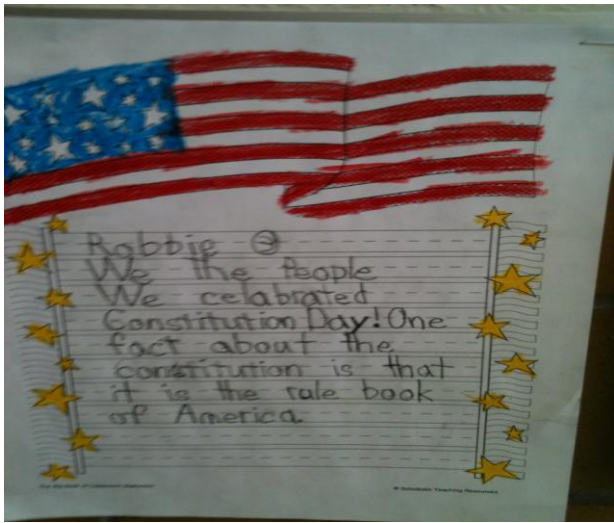 Robbie
We the People
We celabrated
Constitution Day! One
fact about the
constitution is that
it is the rule book
of America
© Scholastic Teaching Resources